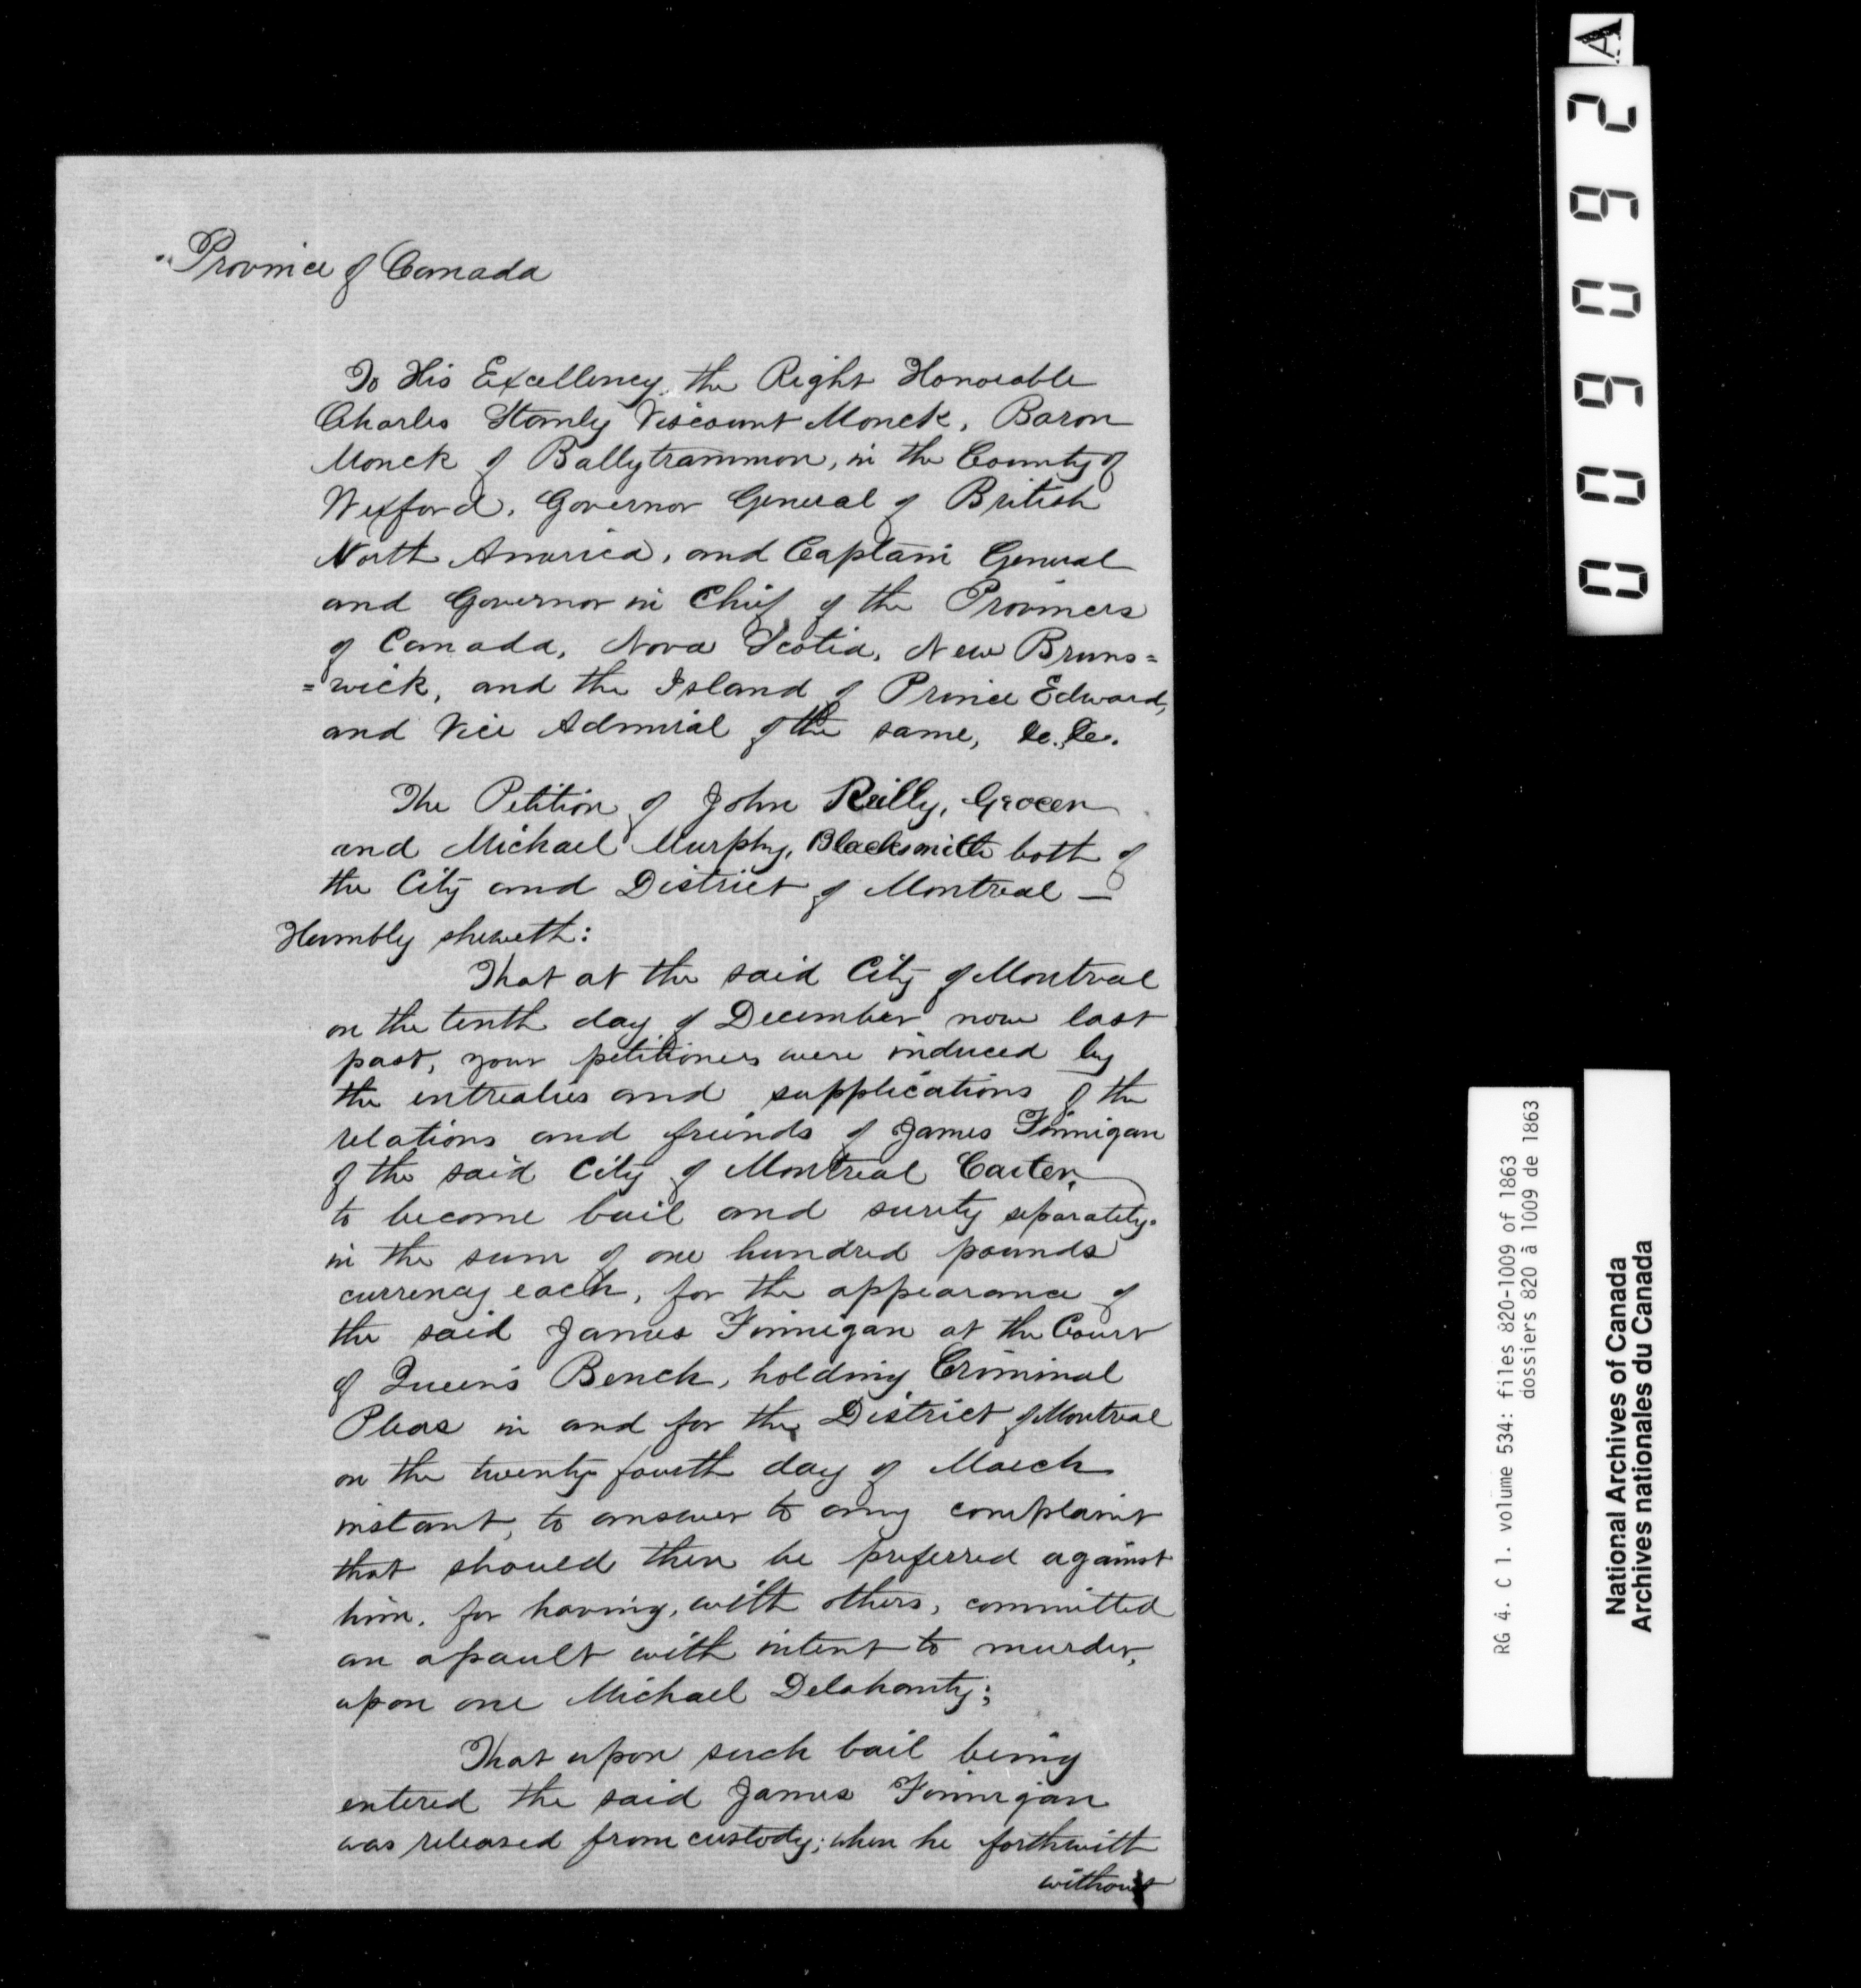 Province of Canada
To His Excellency the Right Honorable
Charles Stanly Viscount Monck, Baron
Monck of Ballytrammon, in the County of
Wexford, Governor General of British
North America, and Captain General
and Governor in Chief of the Provinces
of Canada, Nova Scotia, New Bruns=
=wick, and the Island of Prince Edward,
and Vice Admiral of the same, &c. &c.
The Petition of John Reilly, Grocer
and Michael Murphy, Blacksmith both of
the City and District of Montreal —
Humbly sheweth:
That at the said City of Montreal
on the tenth day of December now last
past, your petitioners were induced by
the entreaties and supplications of the
relations and freinds of James Finnigan
of the said City of Montreal Carter,
to become bail and surety separately
in the sum of one hundred pounds
currency each, for the appearance of
the said James Finnigan at the Court
of Queen's Bench, holding Criminal
Pleas in and for the District of Montreal
on the twenty fourth day of March
instant, to answer to any complaint
that should then be preferred against
him, for having, with others, committed
an assault with intent to murder,
upon one Michael Delahanty;
That upon such bail being
entered the said James Finnigan
was released from custody; when he forthwith
without
009092
A
RG 4. C 1. volume 534: files 820-1009 of 1863
dossiers 820 à 1009 de 1863
National Archives of Canada
Archives nationales du Canada